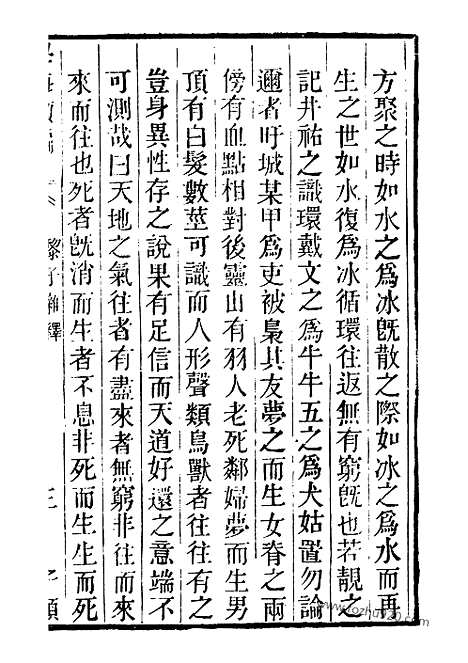 方聚之時如水之爲冰旣散之際如冰之爲水而再
生之世如水復爲冰循環往返無有窮旣也若靚之
記井祐之識環戴文之爲牛牛五之爲犬姑置勿論
邇者旴城某甲爲吏被梟其友夢之而生女脊之兩
傍有血點相對後靈山有羽人老死鄰婦夢而生男
頂有白髮數莖可識而人形聲類鳥獸者往往有之
豈身異性存之說果有足信而天道好還之意端不
可測哉曰天地之氣往者有盡來者無窮非往而來
來而往也死者旣消而生者不息非死而生生而死
海
編
黎子雜釋
三
www.fozhu920.com